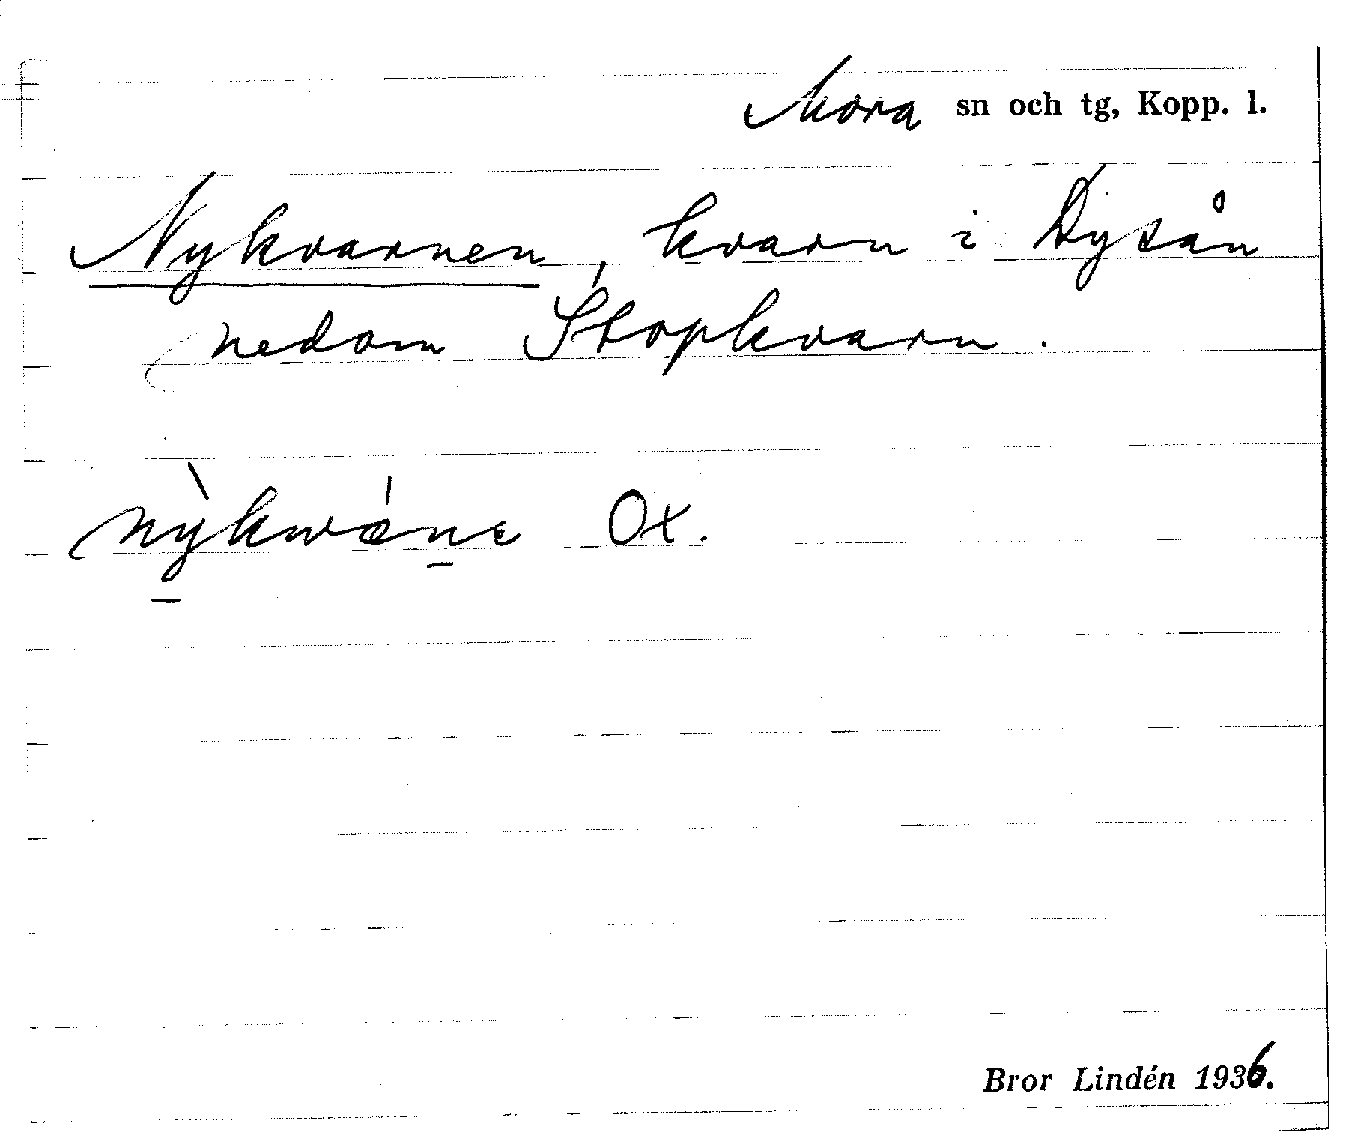 Mora sn och tg, Kopp. l.
Nykvarnen, kvarn i Dysån
nedom Stopkvarn.
nỳkwáne Ox.
Bror Lindén 1936.